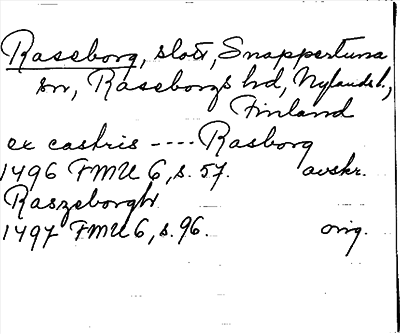 Raseborg, slott, Snappertuna
sn, Raseborgs hd, Nylands l.,
Finland
ex castris ---- Rasborg
1496 FMU 6, s. 57. avskr.
Raszeborgh
1497 FMU 6, s. 96. orig.